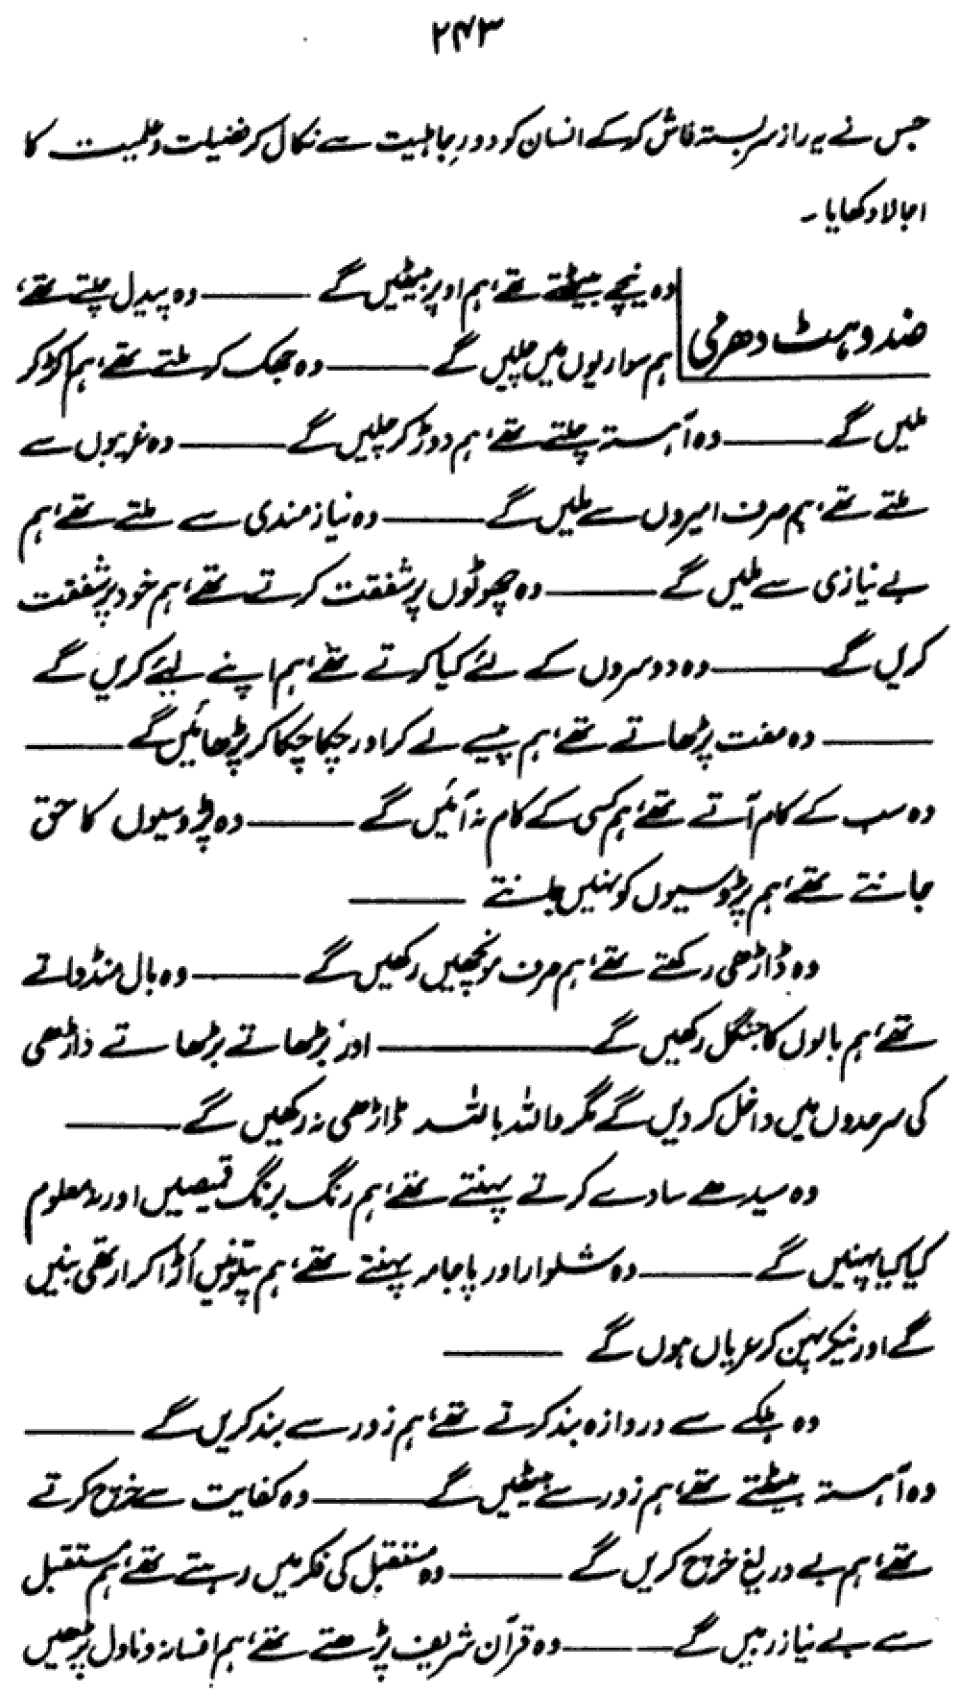 ۲۴۳
جس نے یہ راز سر بستہ فاش کر کے انسان کو دورِ جاہلیت سے نکال کر فضیلت و علمیت کا
اجالا دکھایا۔
ضد و ہٹ دھرمی
وہ نیچے بیٹھتے تھے، ہم اوپر بیٹھیں گے ——— وہ پیدل چلتے تھے،
ہم سواریوں میں چلیں گے ——— وہ جھک کر ملتے تھے، ہم اکڑ کر
ملیں گے ——— وہ آہستہ چلتے تھے، ہم دوڑ کر چلیں گے ——— وہ غریبوں سے
ملتے تھے، ہم صرف امیروں سے ملیں گے ——— وہ نیاز مندی سے ملتے تھے، ہم
بے نیازی سے ملیں گے ——— وہ چھوٹوں پر شفقت کرتے تھے، ہم خود پر شفقت
کریں گے ——— وہ دوسروں کے لئے کیا کرتے تھے، ہم اپنے لیئے کریں گے
——— وہ مفت پڑھاتے تھے، ہم پیسے لے کر اور چکا چکا کر پڑھائیں گے ———
وہ سب کے کام آتے تھے، ہم کسی کے کام نہ آئیں گے ——— وہ پڑوسیوں کا حق
جانتے تھے، ہم پڑوسیوں کو نہیں جانتے ———
وہ ڈاڑھی رکھتے تھے، ہم صرف مونچھیں رکھیں گے ——— وہ بال منڈواتے
تھے، ہم بالوں کا جنگل رکھیں گے ——— اور بڑھاتے بڑھاتے داڑھی
کی سرحدوں میں داخل کر دیں گے مگر واللہ باللہ ڈاڑھی نہ رکھیں گے ———
وہ سیدھے سادے کرتے پہنتے تھے، ہم رنگ برنگ قمیصیں اور نہ معلوم
کیا کیا پہنیں گے ——— وہ شلوار اور پاجامہ پہنتے تھے، ہم پتلونیں اُڑا کر ارتھی بنیں
گے اور نیکر پہن کر عریاں ہوں گے ———
وہ ہلکے سے دروازہ بند کرتے تھے، ہم زور سے بند کریں گے ———
وہ آہستہ بیٹھتے تھے، ہم زور سے بیٹھیں گے ——— وہ کفایت سے خرچ کرتے
تھے، ہم بے دریغ خرچ کریں گے ——— وہ مستقبل کی فکر میں رہتے تھے، ہم مستقبل
سے بے نیاز رہیں گے ——— وہ قرآن شریف پڑھتے تھے، ہم افسانہ و ناول پڑھیں